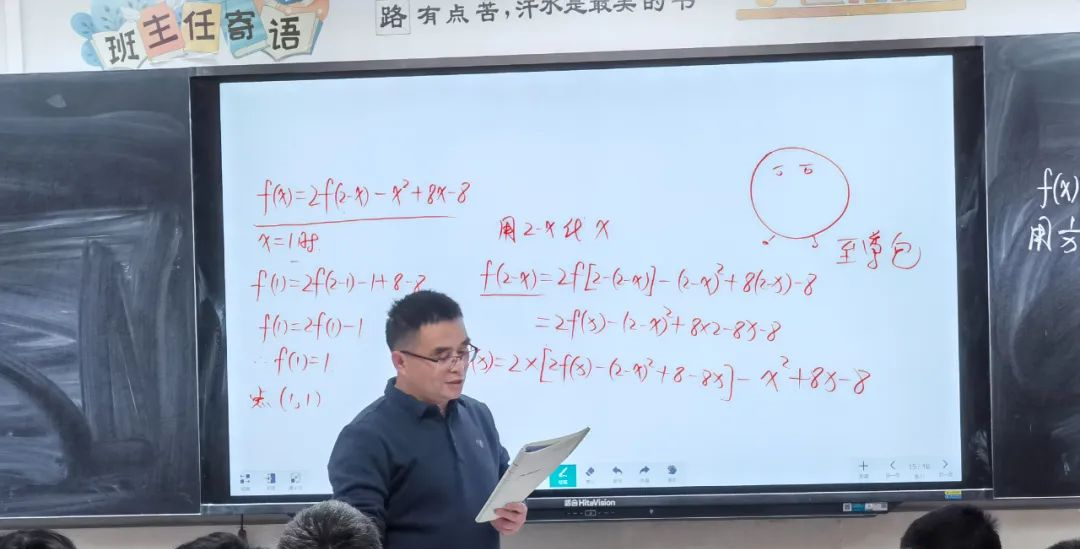 班主任寄语
路有点苦,汗水是最美的书
f(x)=2f(2-x)-x²+8x-8
x=1时
f(1)=2f(2-1)-1+8-8
f(1)=2f(1)-1
∴f(1)=1
点(1,1)
用2-x代x
f(2-x)=2f[2-(2-x)]-(2-x)²+8(2-x)-8
=2f(x)-(2-x)²+8×2-8x-8
(x)=2×[2f(x)-(2-x)²+8-8x]-x²+8x-8
f(x)
用1/x
15/16
HiteVision